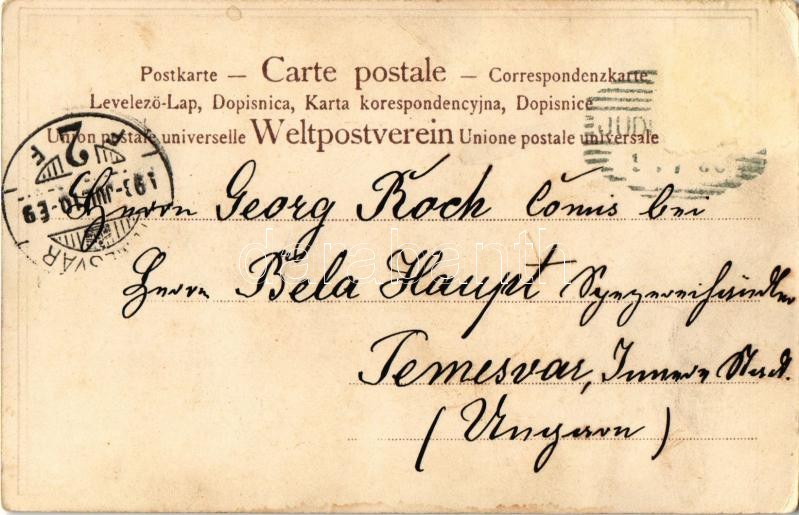 Postkarte — Carte postale — Correspondenzkarte
Levelezö-Lap, Dopisnica, Karta korespondencyjna, Dopisnice
Union postale universelle Weltpostverein Unione postale universale
JUD
2
Herrn Georg Koch Comis bei
darabanth
Herrn Béla Haupt Spezereihändler
Temesvar, Innere Stadt.
(Ungarn)